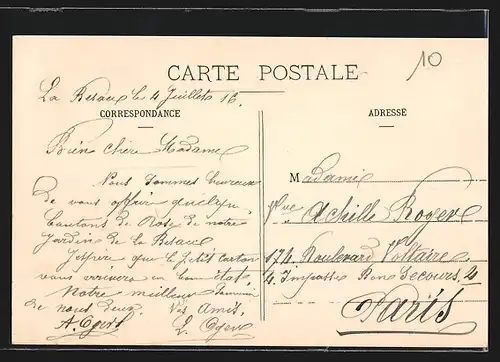 10
CARTE POSTALE
La Besace le 4 Juillet 16.
CORRESPONDANCE
ADRESSE
Bien chère Madame
Nous sommes heureux
de vous offrir quelques
boutons de Rose de notre
Jardin de la Besace
J'espère que le petit carton
vous arrivera en bon état.
Notre meilleur Souvenir
de nous deux. Vos Amis.
A. Ogert L. Oger
Madame
Vve Achille Royer
174 Boulevard Voltaire
4. Impasse Bon Secours. 4
Paris